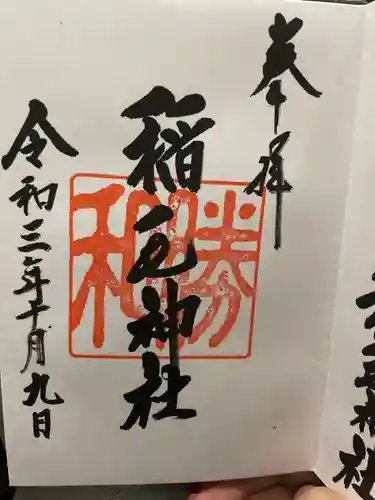 奉拝
勝和
稲毛神社
令和三年十月九日